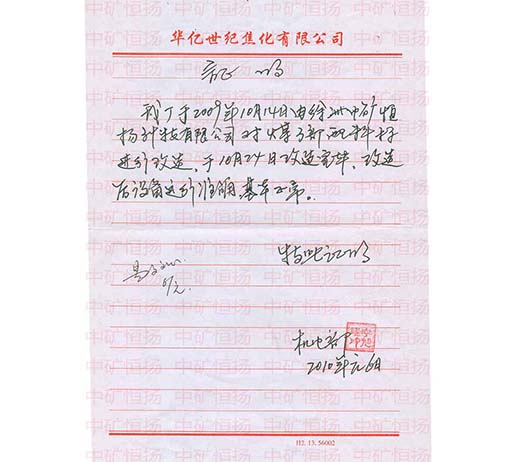 华亿世纪焦化有限公司
证 明
我厂于2009年10月14日由徐州中矿恒
扬科技有限公司对配料秤
进行改造，于10月24日改造完毕，改造
后设备运行准确基本正常。
特此证明
6/元.
机电部
2010年元6日
H2. 13. 56002
中矿恒扬